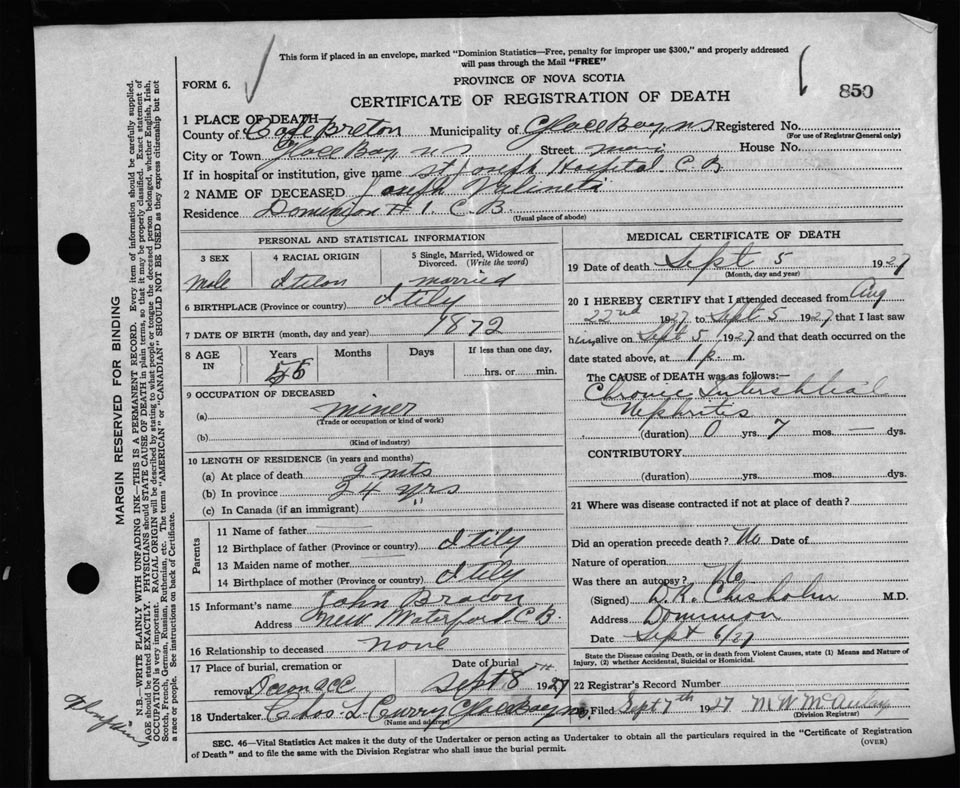 This form if placed in an envelope, marked "Dominion Statistics—Free, penalty for improper use $300," and properly addressed
will pass through the Mail "FREE"
FORM 6.
PROVINCE OF NOVA SCOTIA
859
CERTIFICATE OF REGISTRATION OF DEATH
1 PLACE OF DEATH
County of Cape Breton Municipality of Glace Bay NS Registered No.
(For use of Registrar General only)
City or Town Glace Bay NS Street House No.
If in hospital or institution, give name St Joseph Hospital C.B.
2 NAME OF DECEASED Joseph
Residence Dominion # 1 C.B.
(Usual place of abode)
PERSONAL AND STATISTICAL INFORMATION
3 SEX
4 RACIAL ORIGIN
5 Single, Married, Widowed or
Divorced. (Write the word)
Male Itilon married
6 BIRTHPLACE (Province or country) Itily
7 DATE OF BIRTH (month, day and year) 1872
8 AGE
IN
Years Months Days If less than one day,
hrs. or min.
9 OCCUPATION OF DECEASED
(a) miner
(Trade or occupation or kind of work)
(b)
(Kind of industry)
10 LENGTH OF RESIDENCE (in years and months)
(a) At place of death 2 mts
(b) In province 24 yrs
(c) In Canada (if an immigrant) "
Parents
11 Name of father
12 Birthplace of father (Province or country) Itily
13 Maiden name of mother
14 Birthplace of mother (Province or country) Itily
15 Informant's name John
Address New Waterford C.B.
16 Relationship to deceased none
17 Place of burial, cremation or
removal
Date of burial
Sept 8TH 1927
18 Undertaker Chas L Curry Glace Bay NS
(Name and address)
MEDICAL CERTIFICATE OF DEATH
19 Date of death Sept 5 1927
(Month, day and year)
20 I HEREBY CERTIFY that I attended deceased from Aug
22nd 1927 to Sept 5 1927 that I last saw
him alive on Sept 5 1927 and that death occurred on the
date stated above, at 1 p. m.
The CAUSE of DEATH was as follows:
Chronic Interstitial
Nephritis
(duration) 0 yrs. 7 mos. — dys.
CONTRIBUTORY
(duration) yrs. mos. dys.
21 Where was disease contracted if not at place of death?
Did an operation precede death? No Date of
Nature of operation
Was there an autopsy? No
(Signed) D.K. Chisholm M.D.
Address Dominion
Date Sept 6/27
State the Disease causing Death, or in death from Violent Causes, state (1) Means and Nature of
Injury, (2) whether Accidental, Suicidal or Homicidal.
22 Registrar's Record Number
Filed Sept 7th 1927 M W McAulay
(Division Registrar)
SEC. 46—Vital Statistics Act makes it the duty of the Undertaker or person acting as Undertaker to obtain all the particulars required in the "Certificate of Registration
of Death" and to file the same with the Division Registrar who shall issue the burial permit.
(OVER)
MARGIN RESERVED FOR BINDING
N.B.—WRITE PLAINLY WITH UNFADING INK—THIS IS A PERMANENT RECORD. Every item of information should be carefully supplied.
AGE should be stated EXACTLY. PHYSICIANS should STATE CAUSE OF DEATH in plain terms, so that it may be properly classified. Exact statement of
OCCUPATION is very important. RACIAL ORIGIN will be described by stating to what people or tongue the deceased person belonged, whether English, Irish,
Scotch, French, German, Russian, Ruthenian, etc. The terms "AMERICAN" or "CANADIAN" SHOULD NOT BE USED as they express citizenship but not
a race or people. See instructions on back of Certificate.